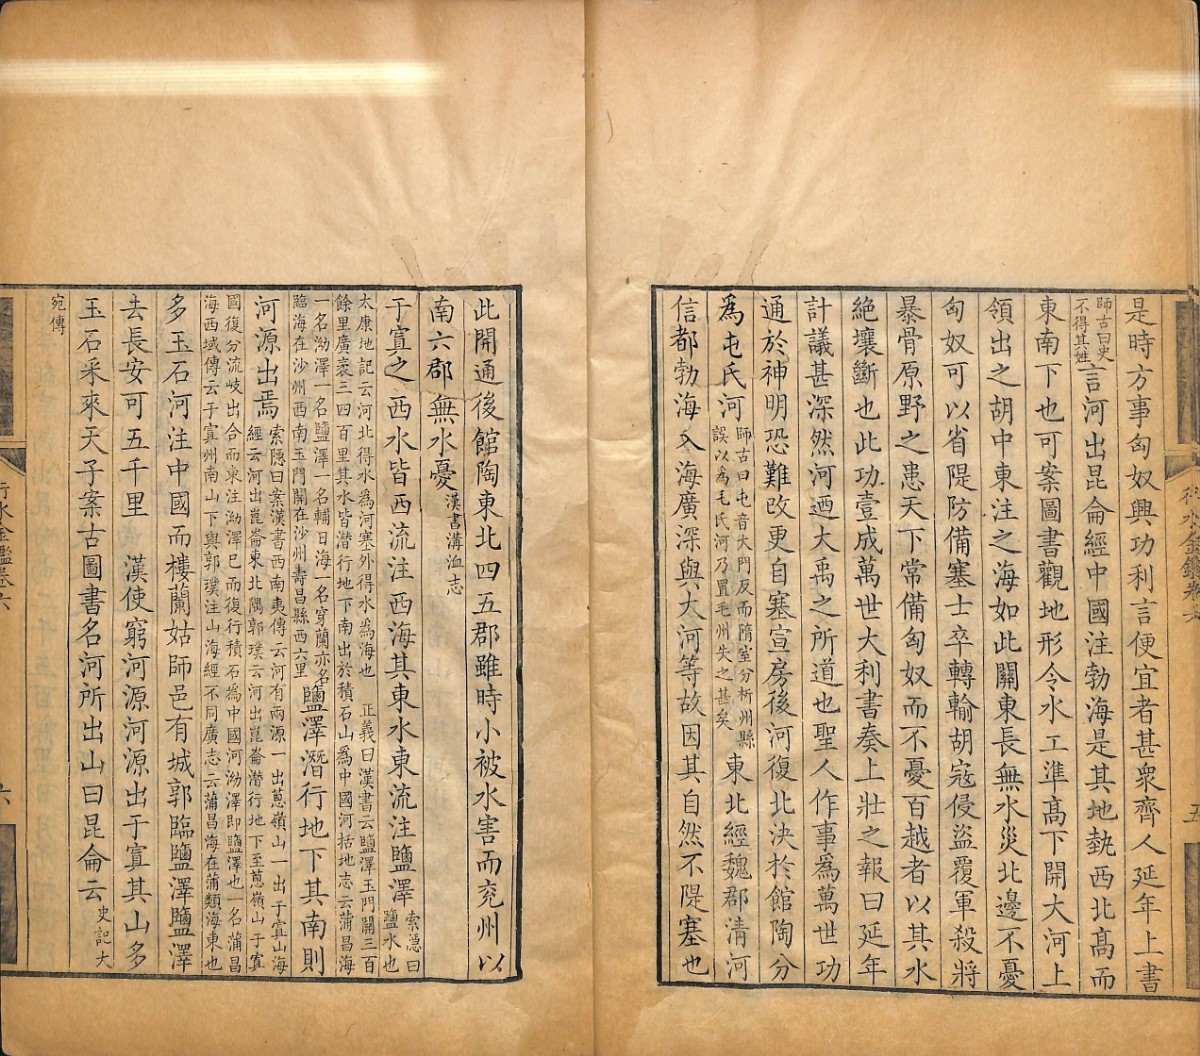 是時方事匈奴興功利言便宜者甚衆齊人延年上書
師古曰史
不得其姓
言河出昆侖經中國注勃海是其地埶西北高而
東南下也可案圖書觀地形令水工準高下開大河上
領出之胡中東注之海如此關東長無水災北邊不憂
匈奴可以省隄防備塞士卒轉輸胡寇侵盜覆軍殺將
暴骨原野之患天下常備匈奴而不憂百越者以其水
絶壤斷也此功壹成萬世大利書奏上壯之報曰延年
計議甚深然河迺大禹之所道也聖人作事爲萬世功
通於神明恐難改更自塞宣房後河復北決於館陶分
爲屯氏河
師古曰屯音大門反而隋室分析州縣
誤以爲毛氏河乃置毛州失之甚矣
東北經魏郡清河
信都勃海入海廣深與大河等故因其自然不隄塞也
行水金鑑卷六
五
此開通後館陶東北四五郡雖時小被水害而兖州以
南六郡無水憂
漢書溝洫志
于窴之西水皆西流注西海其東水東流注鹽澤
索隱曰
鹽水也
太康地記云河北得水爲河塞外得水爲海也 正義曰漢書云鹽澤玉門關三百
餘里廣袤三四百里其水皆潜行地下南出於積石山爲中國河括地志云蒲昌海
一名泑澤一名鹽澤一名輔日海一名穿蘭亦名
臨海在沙州西南玉門關在沙州壽昌縣西六里
鹽澤潛行地下其南則
河源出焉
索隱曰案漢書西南夷傳云河有兩源一出蔥嶺山一出于窴山海
經云河出崑崙東北隅郭璞云河出崑崙潜行地下至蔥嶺山于窴
國復分流岐出合而東注泑澤已而復行積石爲中國河泑澤即鹽澤也一名蒲昌
海西域傳云于窴州南山下與郭璞注山海經不同廣志云蒲昌海在蒲類海東也
多玉石河注中國而樓蘭姑師邑有城郭臨鹽澤鹽澤
去長安可五千里 漢使窮河源河源出于窴其山多
玉石采來天子案古圖書名河所出山曰昆侖云
史記大
宛傳
行水金鑑卷六
六